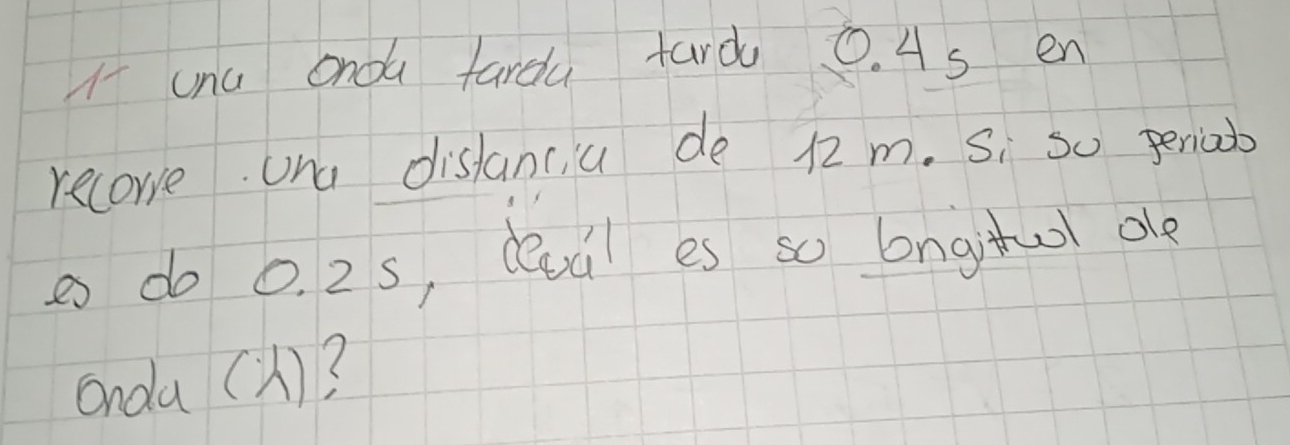 1- una onda tarda tarda 0.4 s en
recorre una distancia de 12 m. Si su periodo
es do 0.2 s, ¿cuál es su longitud de
onda (λ)?